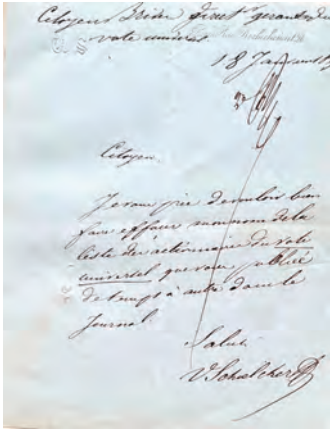 Citoyen
vote universel
18 Janvier
Citoyen
Je vous prie de vouloir bien
faire effacer mon nom de la
liste des actionnaires du vote
universel que vous publiez
de temps à autre dans le
Journal.
Salut
V. Schoelcher